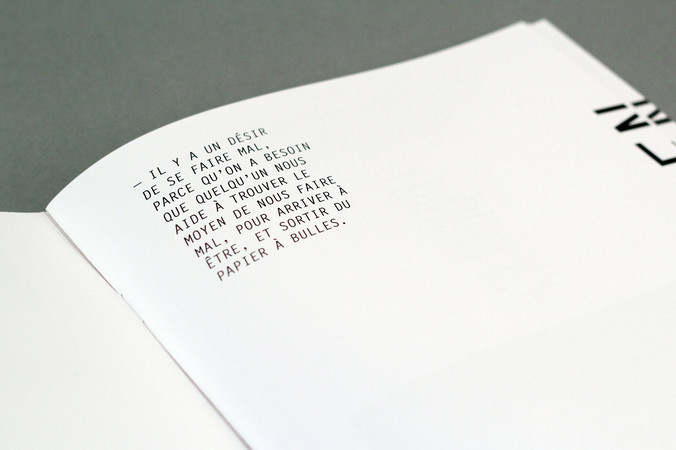 — IL Y A UN DÉSIR
DE SE FAIRE MAL,
PARCE QU'ON A BESOIN
QUE QUELQU'UN NOUS
AIDE À TROUVER LE
MOYEN DE NOUS FAIRE
MAL, POUR ARRIVER À
ÊTRE, ET SORTIR DU
PAPIER À BULLES.